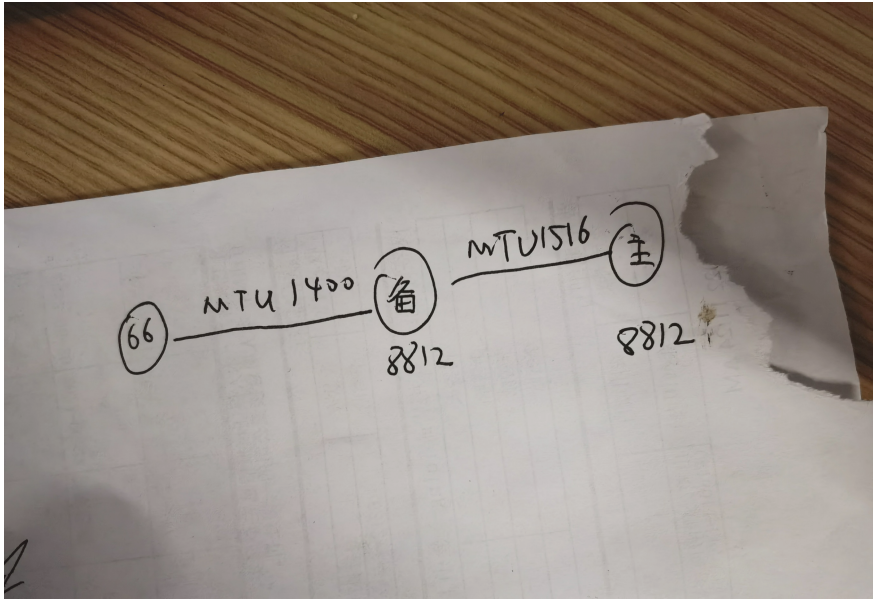 66
MTU 1400
备
8812
MTU1516
主
8812